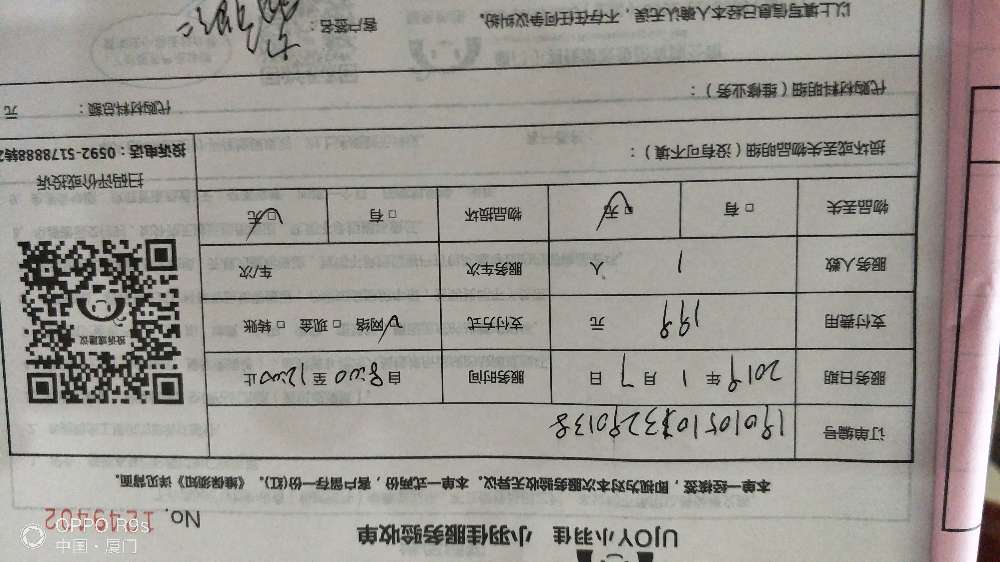 UJOY小羽佳 小羽佳服务验收单
No. 1249402
本单一经核签，即视为对本次服务验收无异议。本单一式两份，客户留存一份(红)。《维保须知》详见背面。
订单编号
服务日期 2019 年 1 月 7 日 服务时间 自 8:00 至 12:00 止
支付费用 199 元 支付方式 网络 □ 现金 □ 转账
服务人数 1 人 服务车次 车/次
物品丢失 □ 有 □ 无 物品损坏 □ 有 □ 无
投诉或建议
扫码评价或投诉
投诉电话：0592-5178888转2
损坏或丢失物品明细（没有可不填）：
代购材料明细（维修业务）：
代购材料总额： 元
以上填写信息已经本人确认无误，不存在任何争议纠纷。
客户签名：
OPPO R9s
中国·厦门